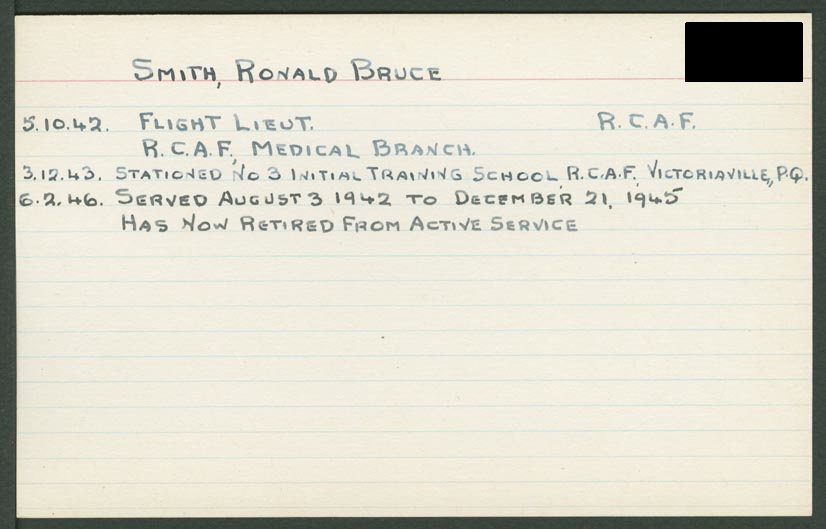 SMITH, RONALD BRUCE
5.10.42. FLIGHT LIEUT. R.C.A.F.
R.C.A.F., MEDICAL BRANCH.
3.12.43. STATIONED NO 3 INITIAL TRAINING SCHOOL, R.C.A.F., VICTORIAVILLE, P.Q.
6.2.46. SERVED AUGUST 3 1942 TO DECEMBER 21, 1945
HAS NOW RETIRED FROM ACTIVE SERVICE